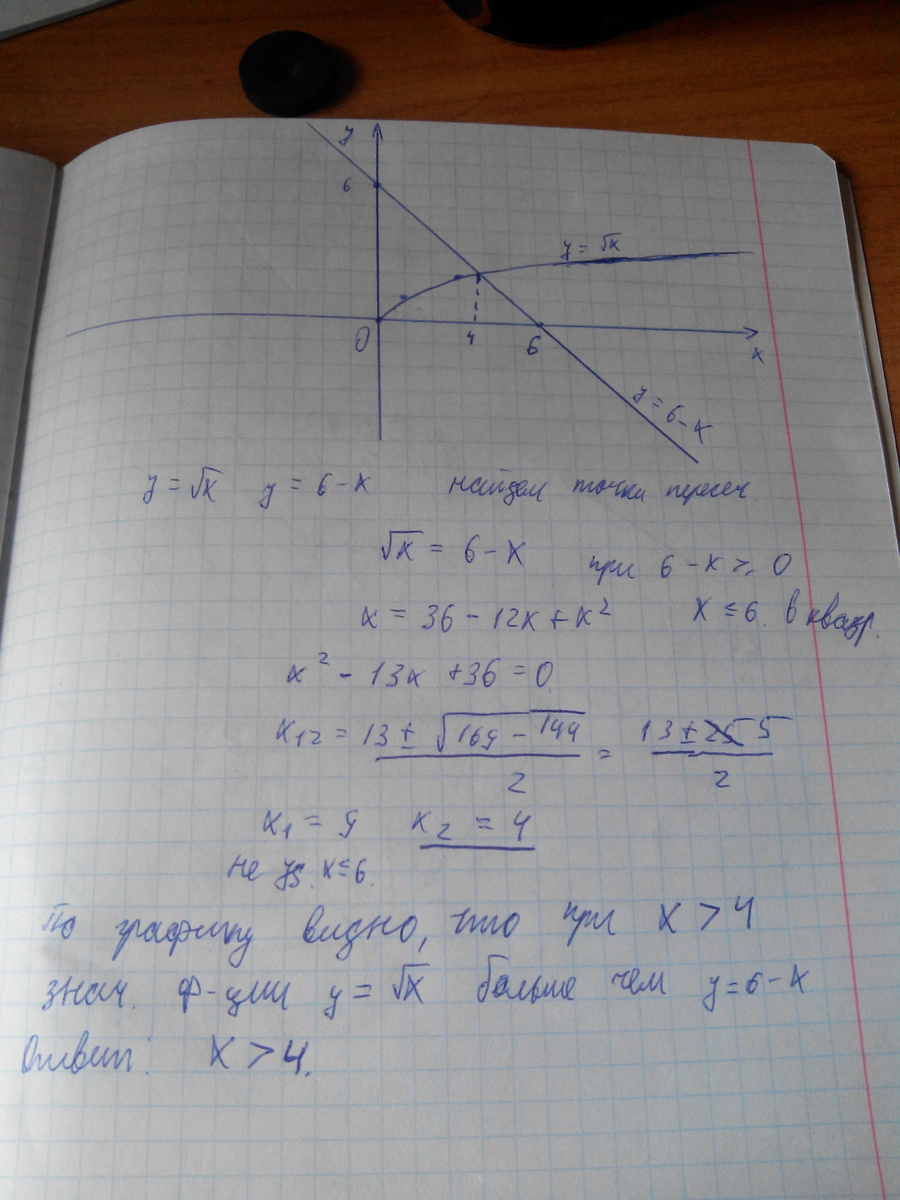 y
6
y = √x
0
4
6
x
y = 6 - x
y = √x y = 6 - x найдем точки пересеч.
√x = 6 - x при 6 - x ≥ 0
x = 36 - 12x + x² x ≤ 6. в квадр.
x² - 13x + 36 = 0
x₁₂ = (13 ± √(169 - 144))/2 = (13 ± 5)/2
x₁ = 9 x₂ = 4
не уд. x ≤ 6.
По графику видно, что при x > 4
знач. ф-ции y = √x больше чем y = 6 - x
Ответ: x > 4.